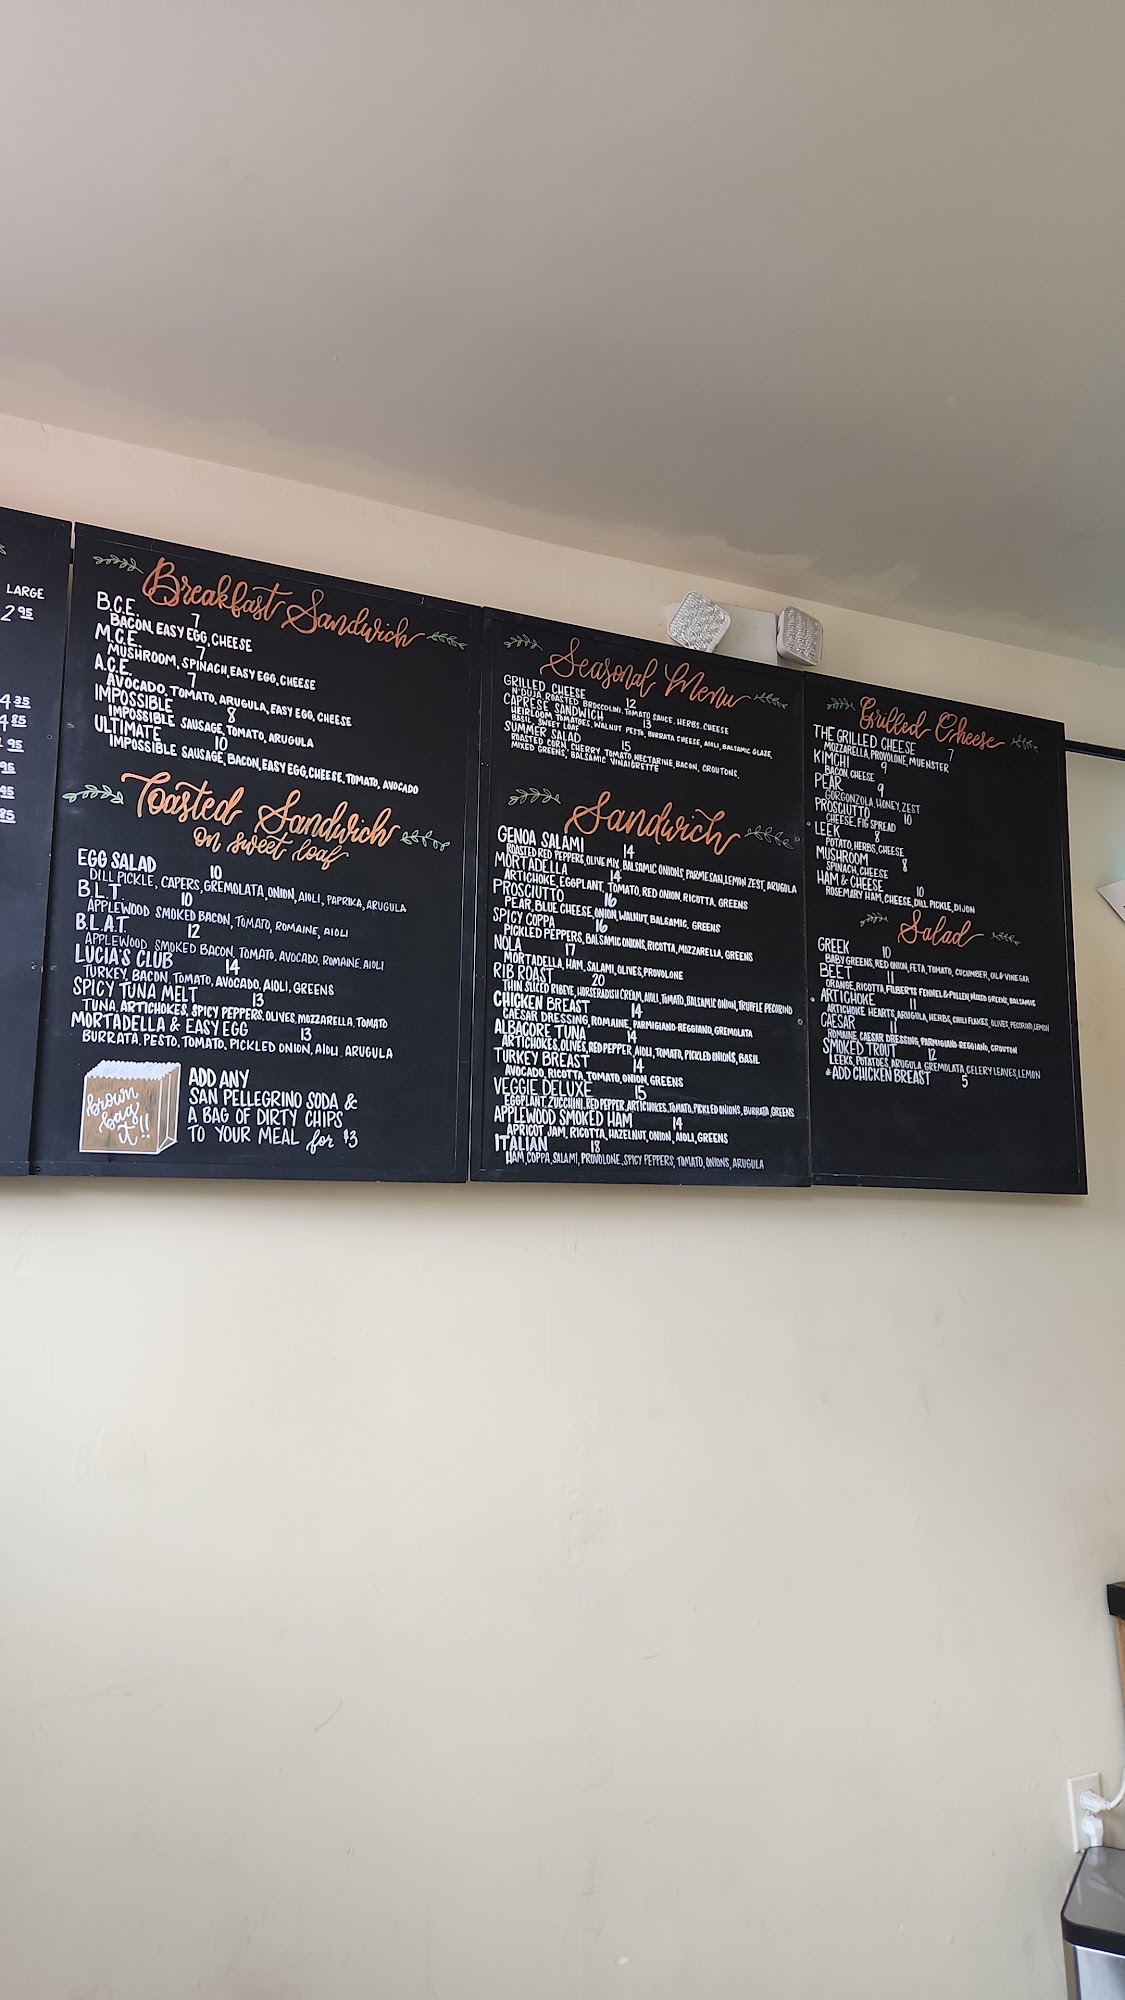 LARGE
2 95
4 35
4 85
95
95
45
85
Breakfast Sandwich
B.C.E. 7
BACON, EASY EGG, CHEESE
M.C.E. 7
MUSHROOM, SPINACH, EASY EGG, CHEESE
A.C.E. 7
AVOCADO, TOMATO, ARUGULA, EASY EGG, CHEESE
IMPOSSIBLE 8
IMPOSSIBLE SAUSAGE, TOMATO, ARUGULA
ULTIMATE 10
IMPOSSIBLE SAUSAGE, BACON, EASY EGG, CHEESE, TOMATO, AVOCADO
Toasted Sandwich
on sweet loaf
EGG SALAD 10
DILL PICKLE, CAPERS, GREMOLATA, ONION, AIOLI, PAPRIKA, ARUGULA
B.L.T. 10
APPLEWOOD SMOKED BACON, TOMATO, ROMAINE, AIOLI
B.L.A.T. 12
APPLEWOOD SMOKED BACON, TOMATO, AVOCADO, ROMAINE, AIOLI
LUCIA'S CLUB 14
TURKEY, BACON, TOMATO, AVOCADO, AIOLI, GREENS
SPICY TUNA MELT 13
TUNA, ARTICHOKES, SPICY PEPPERS, OLIVES, MOZZARELLA, TOMATO
MORTADELLA & EASY EGG 13
BURRATA, PESTO, TOMATO, PICKLED ONION, AIOLI, ARUGULA
brown
bag
it!!
ADD ANY
SAN PELLEGRINO SODA &
A BAG OF DIRTY CHIPS
TO YOUR MEAL for $3
Seasonal Menu
GRILLED CHEESE 12
N'DUJA, ROASTED BROCCOLINI, TOMATO SAUCE, HERBS, CHEESE
CAPRESE SANDWICH 13
HEIRLOOM TOMATOES, WALNUT PESTO, BURRATA CHEESE, AIOLI, BALSAMIC GLAZE,
BASIL, SWEET LOAF
SUMMER SALAD 15
ROASTED CORN, CHERRY TOMATO, NECTARINE, BACON, CROUTONS,
MIXED GREENS, BALSAMIC VINAIGRETTE
Sandwich
GENOA SALAMI 14
ROASTED RED PEPPERS, OLIVE MIX, BALSAMIC ONIONS, PARMESAN, LEMON ZEST, ARUGULA
MORTADELLA 14
ARTICHOKE, EGGPLANT, TOMATO, RED ONION, RICOTTA, GREENS
PROSCIUTTO 16
PEAR, BLUE CHEESE, ONION, WALNUT, BALSAMIC, GREENS
SPICY COPPA 16
PICKLED PEPPERS, BALSAMIC ONIONS, RICOTTA, MOZZARELLA, GREENS
NOLA 17
MORTADELLA, HAM, SALAMI, OLIVES, PROVOLONE
RIB ROAST 20
THIN SLICED RIBEYE, HORSERADISH CREAM, AIOLI, TOMATO, BALSAMIC ONION, TRUFFLE PECORINO
CHICKEN BREAST 14
CAESAR DRESSING, ROMAINE, PARMIGIANO-REGGIANO, GREMOLATA
ALBACORE TUNA 14
ARTICHOKES, OLIVES, RED PEPPER, AIOLI, TOMATO, PICKLED ONIONS, BASIL
TURKEY BREAST 14
AVOCADO, RICOTTA, TOMATO, ONION, GREENS
VEGGIE DELUXE 15
EGGPLANT, ZUCCHINI, RED PEPPER, ARTICHOKES, TOMATO, PICKLED ONIONS, BURRATA, GREENS
APPLEWOOD SMOKED HAM 14
APRICOT JAM, RICOTTA, HAZELNUT, ONION, AIOLI, GREENS
ITALIAN 18
HAM, COPPA, SALAMI, PROVOLONE, SPICY PEPPERS, TOMATO, ONIONS, ARUGULA
Grilled Cheese
THE GRILLED CHEESE 7
MOZZARELLA, PROVOLONE, MUENSTER
KIMCHI 9
BACON, CHEESE
PEAR 9
GORGONZOLA, HONEY, ZEST
PROSCIUTTO 10
CHEESE, FIG SPREAD
LEEK 8
POTATO, HERBS, CHEESE
MUSHROOM 8
SPINACH, CHEESE
HAM & CHEESE 10
ROSEMARY HAM, CHEESE, DILL PICKLE, DIJON
Salad
GREEK 10
BABY GREENS, RED ONION, FETA, TOMATO, CUCUMBER, OLD VINEGAR
BEET 11
ORANGE, RICOTTA, FILBERTS FENNEL & POLLEN, MIXED GREENS, BALSAMIC
ARTICHOKE 11
ARTICHOKE HEARTS, ARUGULA, HERBS, CHILI FLAKES, OLIVES, PECORINO, LEMON
CAESAR 11
ROMAINE, CAESAR DRESSING, PARMIGIANO-REGGIANO, CROUTON
SMOKED TROUT 12
LEEKS, POTATOES, ARUGULA, GREMOLATA, CELERY LEAVES, LEMON
*ADD CHICKEN BREAST 5